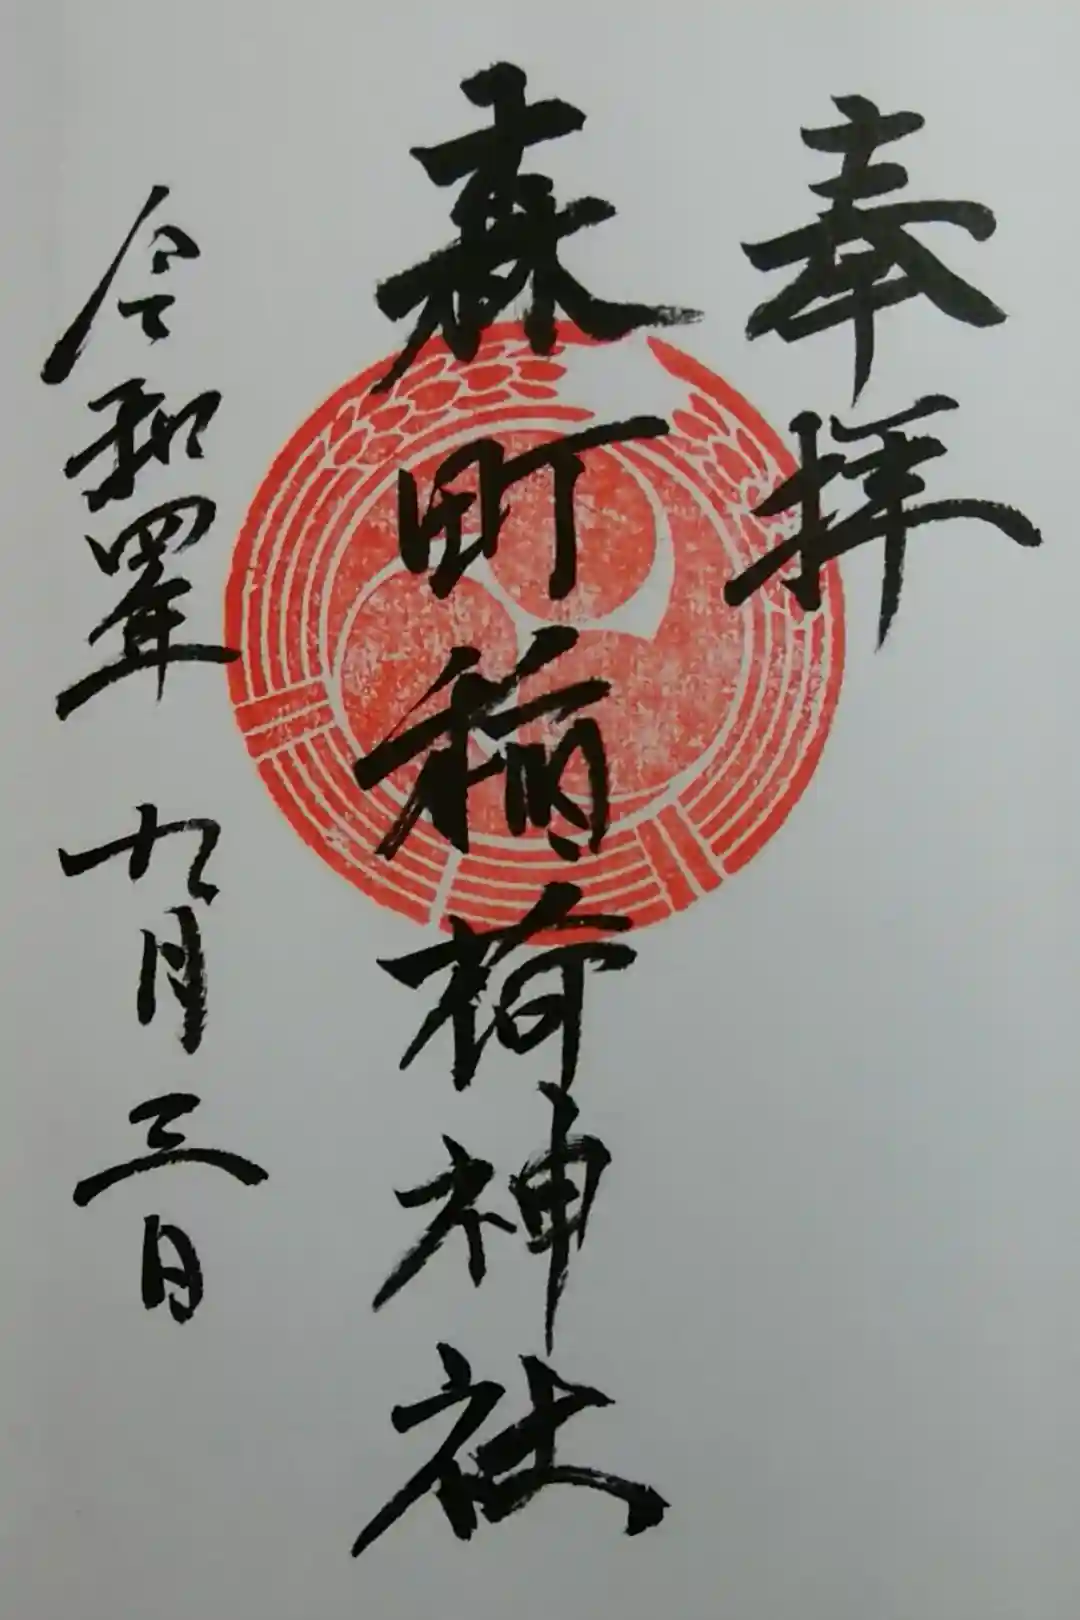 奉拝
森町稲荷神社
令和四年九月三日